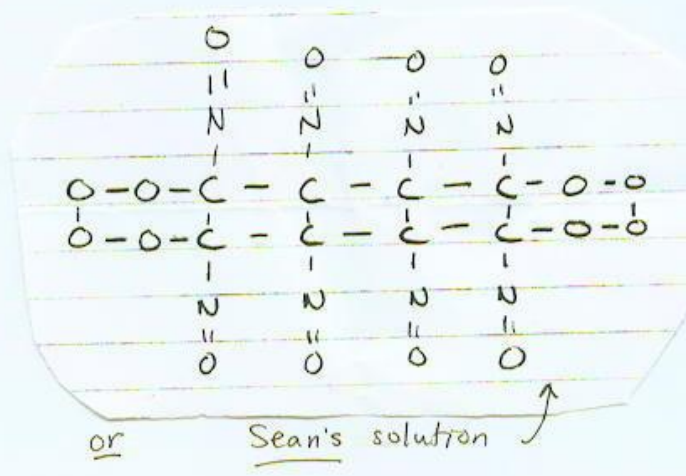 O O O O
= = = =
N N N N
- - - -
O - O - C - C - C - C - O - O
O - O - C - C - C - C - O - O
N N N N
= = = =
O O O O
or Sean's solution